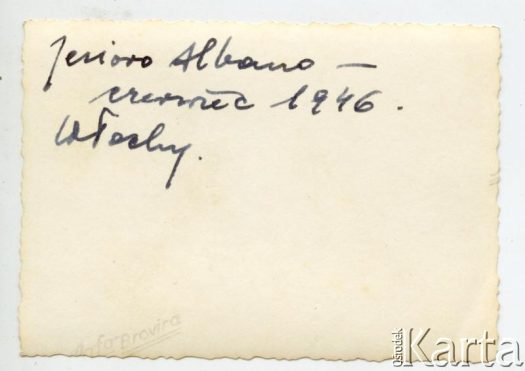 Jezioro Albano –
czerwiec 1946.
Włochy.
Agfa Brovira
Ośrodek
Karta